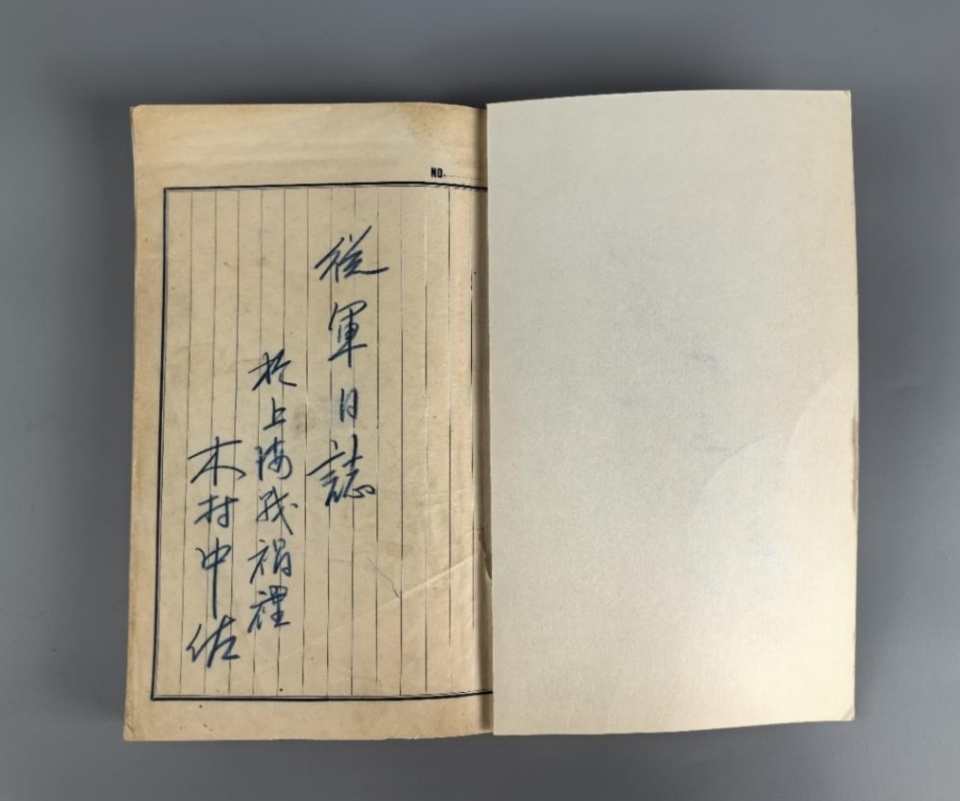 NO.
従軍日誌
於上海戦禍裡
木村中佐